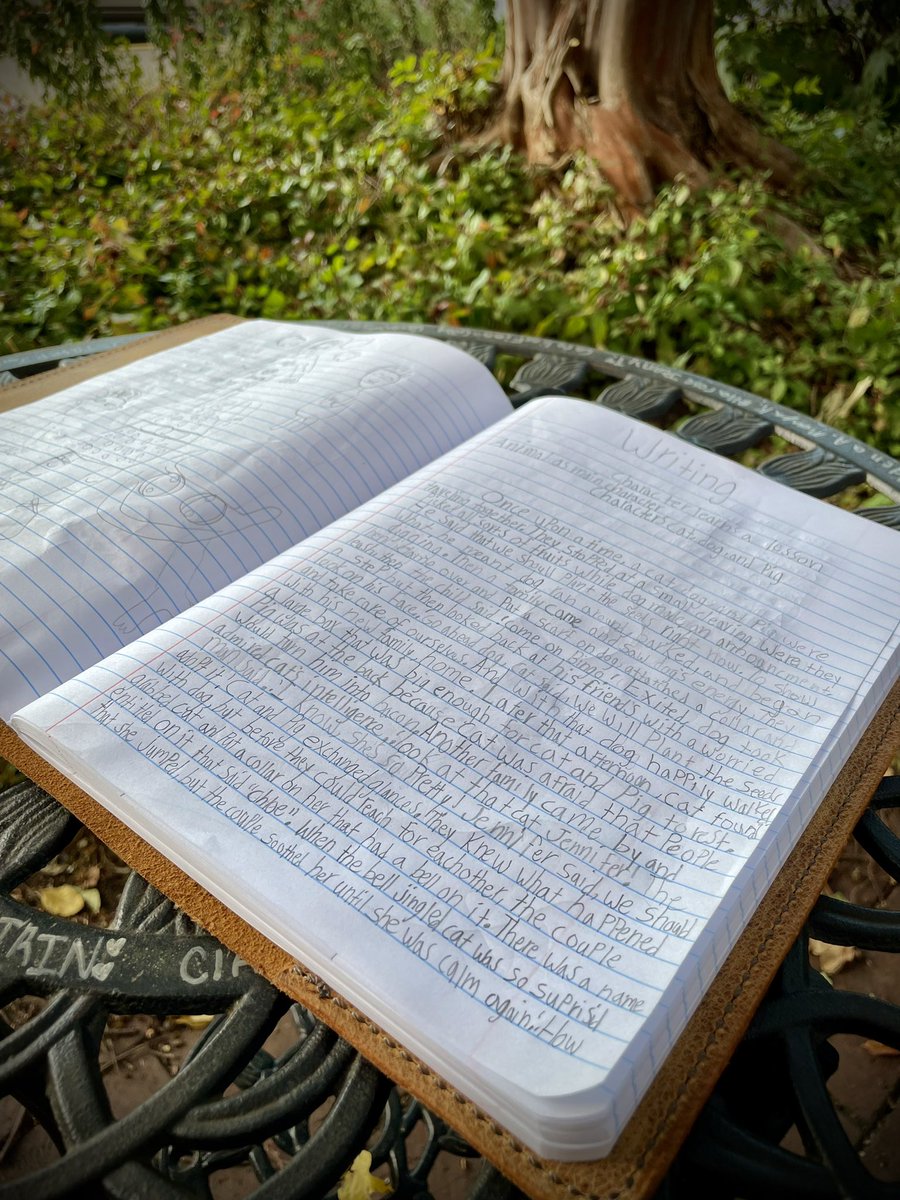 Writing
Animal as main character learns a lesson
Characters: cat, dog, and pig
Once upon a time, a cat, dog, and pig were
traveling together. They stopped at a small clearing were they
ate all sorts of fruits while dog
said that we should plant the seeds right now to show
dog ran around, yelled, and begin
digging. Then a family came and saw dog's energy. The
came over and put a scarf on dog, attached a collar
then the child said "come on Ginger!" Exited, dog took
a step but then looked back at his friends with a worried
look on his face. Go ahead dog cat said, We will plant the seeds
and take care of ourselves. And with that dog happily walked
with his new family home. Later that afternoon cat found
a large box that was big enough for cat and pig to rest.
Pig was at the back because cat was afraid that people
would turn him into bacon. Another family came by and
admired cat's intelligence look at that cat Jennifer! he
said. I know! she's so pretty! Jennifer said we should
adopt it. Cat and pig exchanged glances. They knew what happened
with dog, but before they could reach for eachother the couple
cat and put a collar on her that had a bell on it. There was a name
on it that said "Chloe". When the bell jingled cat was so suprised
that she jumped, but the couple soothed her until she was calm again. How
TRIN
CIF